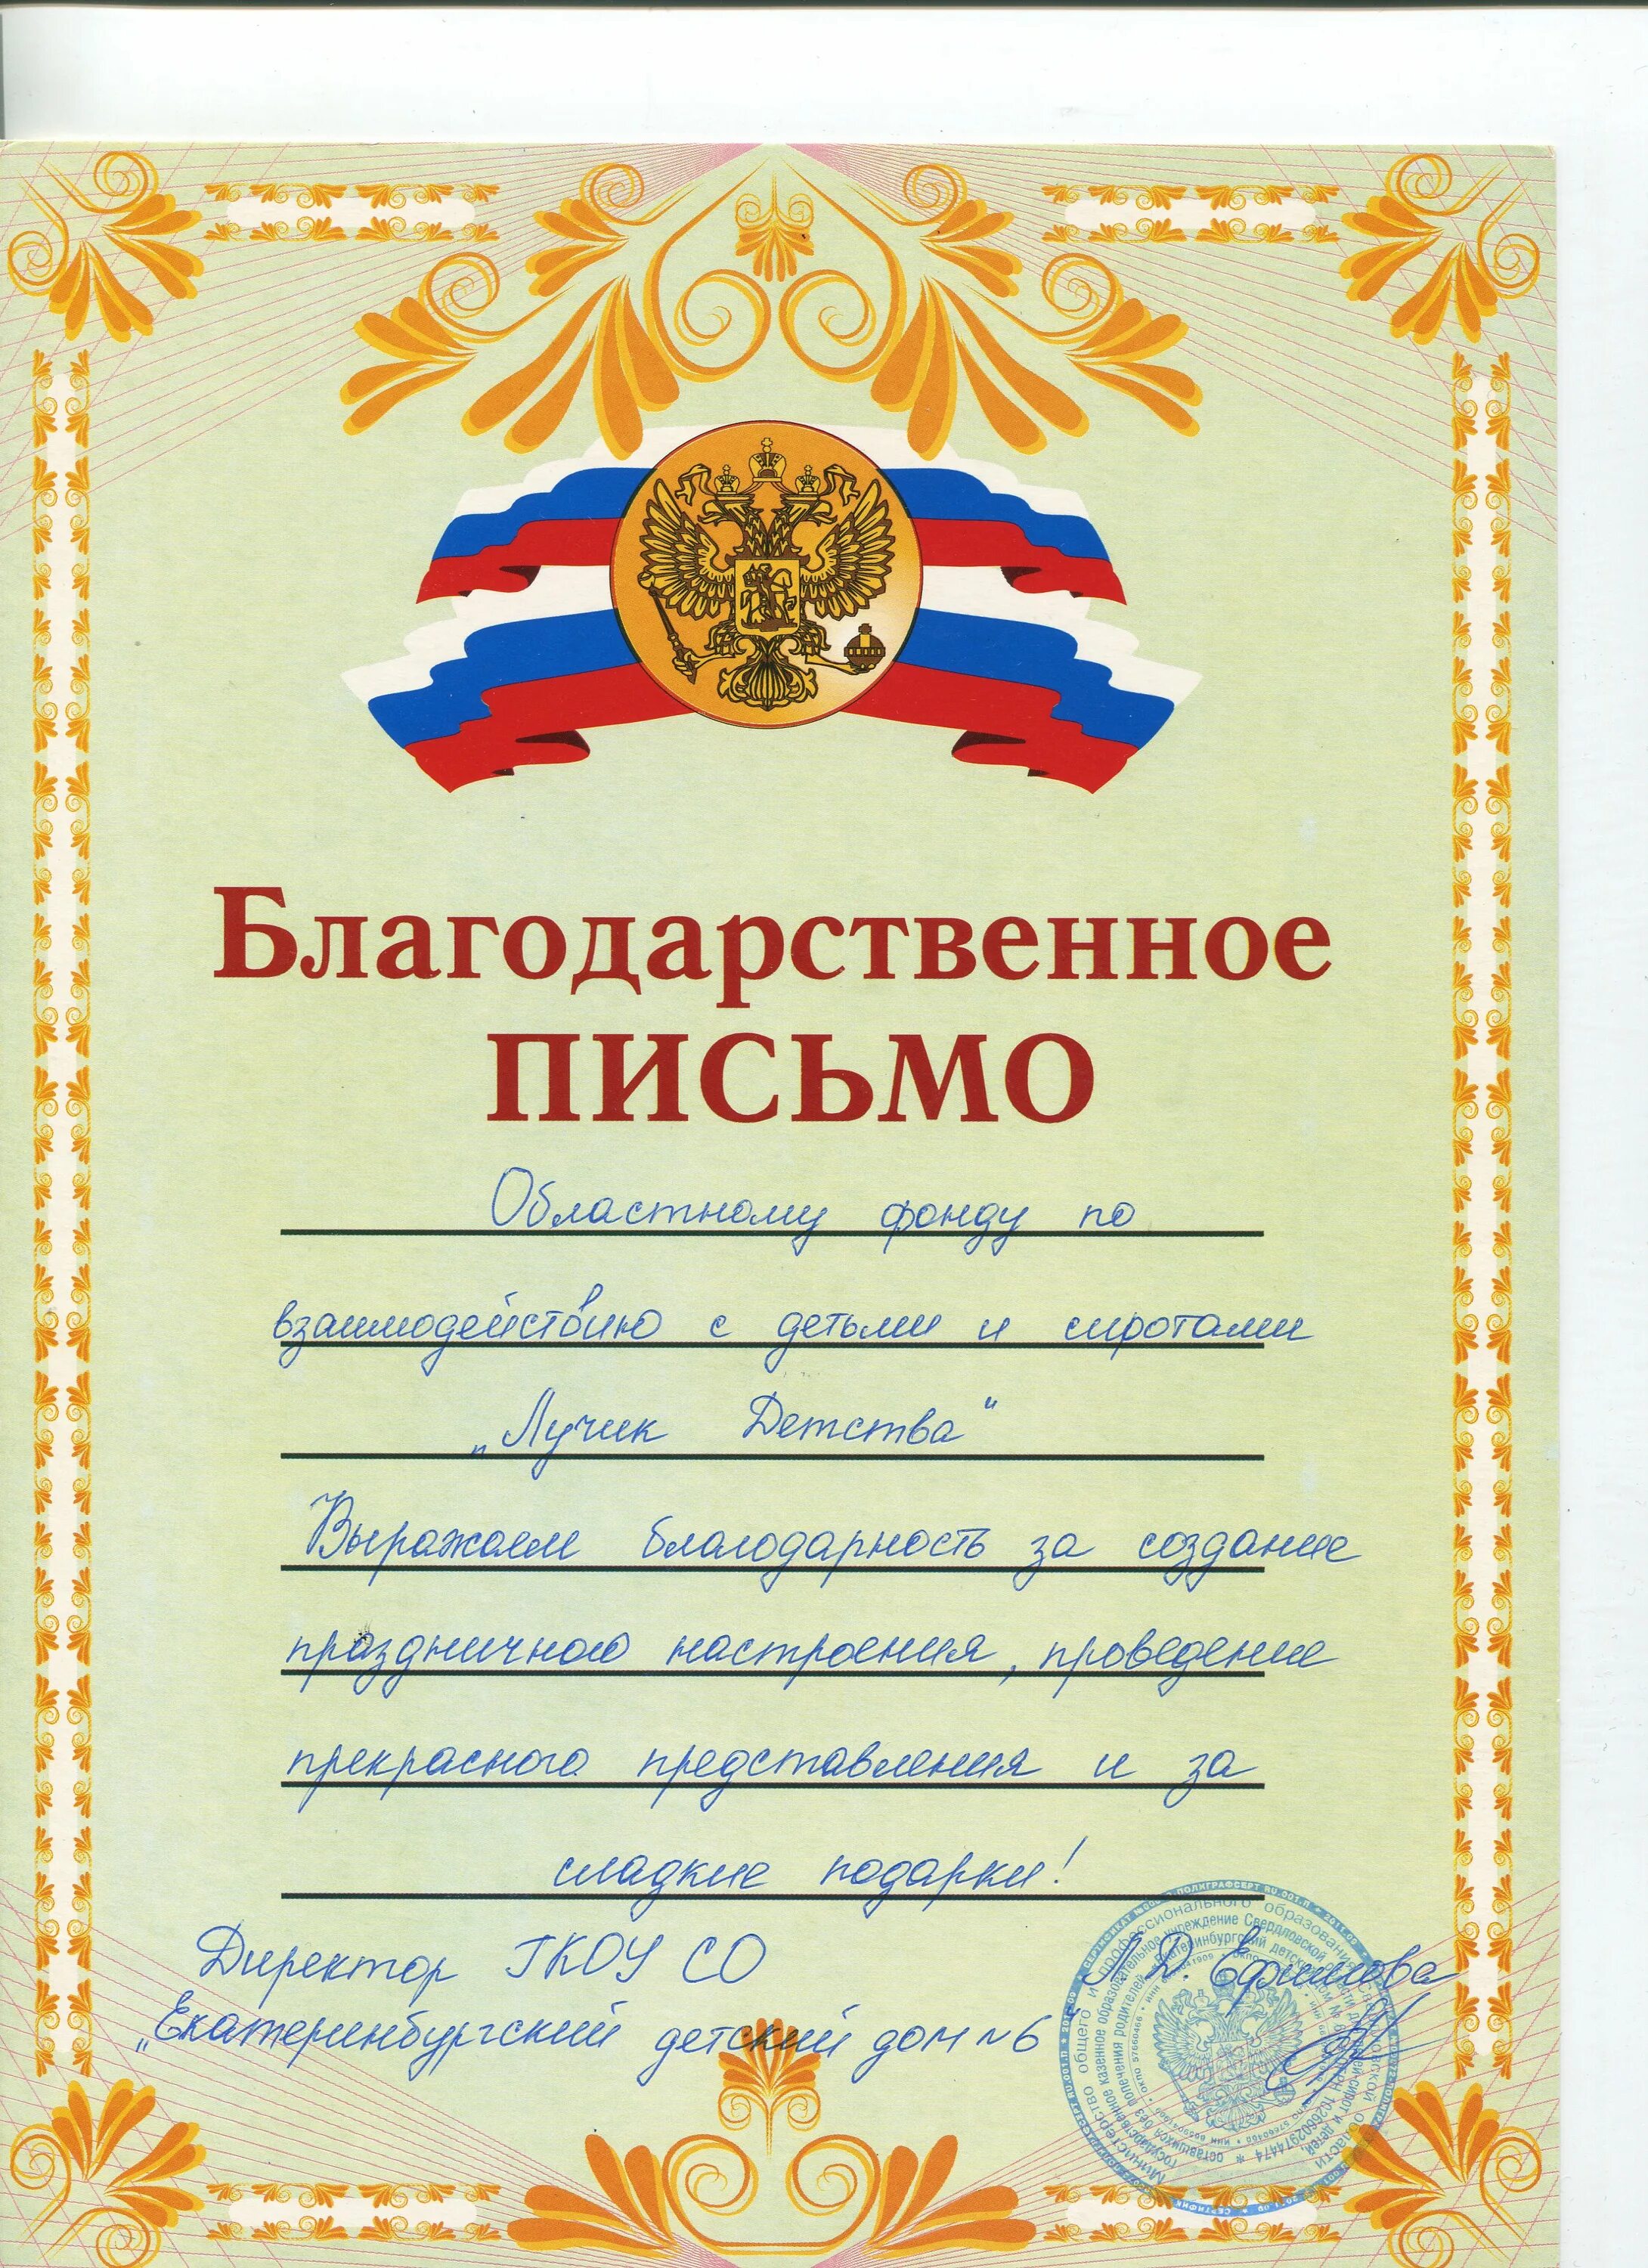 Благодарственное
ПИСЬМО
Областному фонду по
взаимодействию с детьми и сиротами
„Лучик Детства“
Выражаем благодарность за создание
праздничного настроения, проведение
прекрасного представления и за
сладкие подарки!
Директор ГКОУ СО
„Екатеринбургский детский дом №6“
Л.Д. Ефимова
Министерство общего и профессионального образования Свердловской области
государственное казенное образовательное учреждение Свердловской области для детей-сирот и детей,
оставшихся без попечения родителей, "Екатеринбургский детский дом №